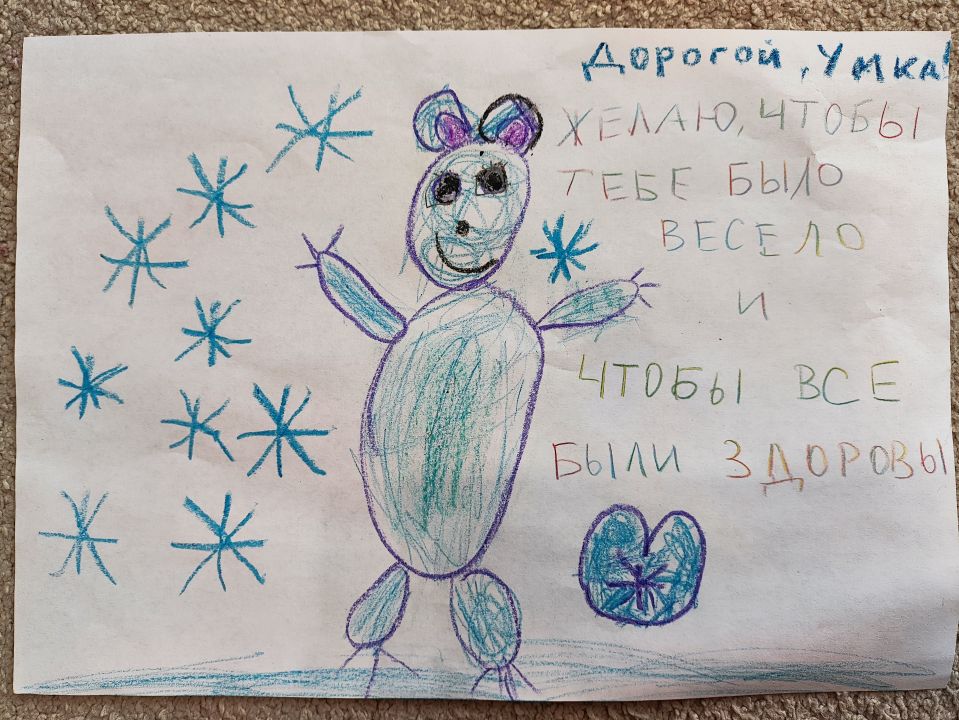 Дорогой, Умка!
ЖЕЛАЮ, ЧТОБЫ
ТЕБЕ БЫЛО
ВЕСЕЛО
И
ЧТОБЫ ВСЕ
БЫЛИ ЗДОРОВЫ